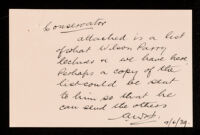 Conservator
attached is a list
of what Wilson Parry
lectures we have here.
Perhaps a copy of the
list could be sent
to him so that he
can send the others